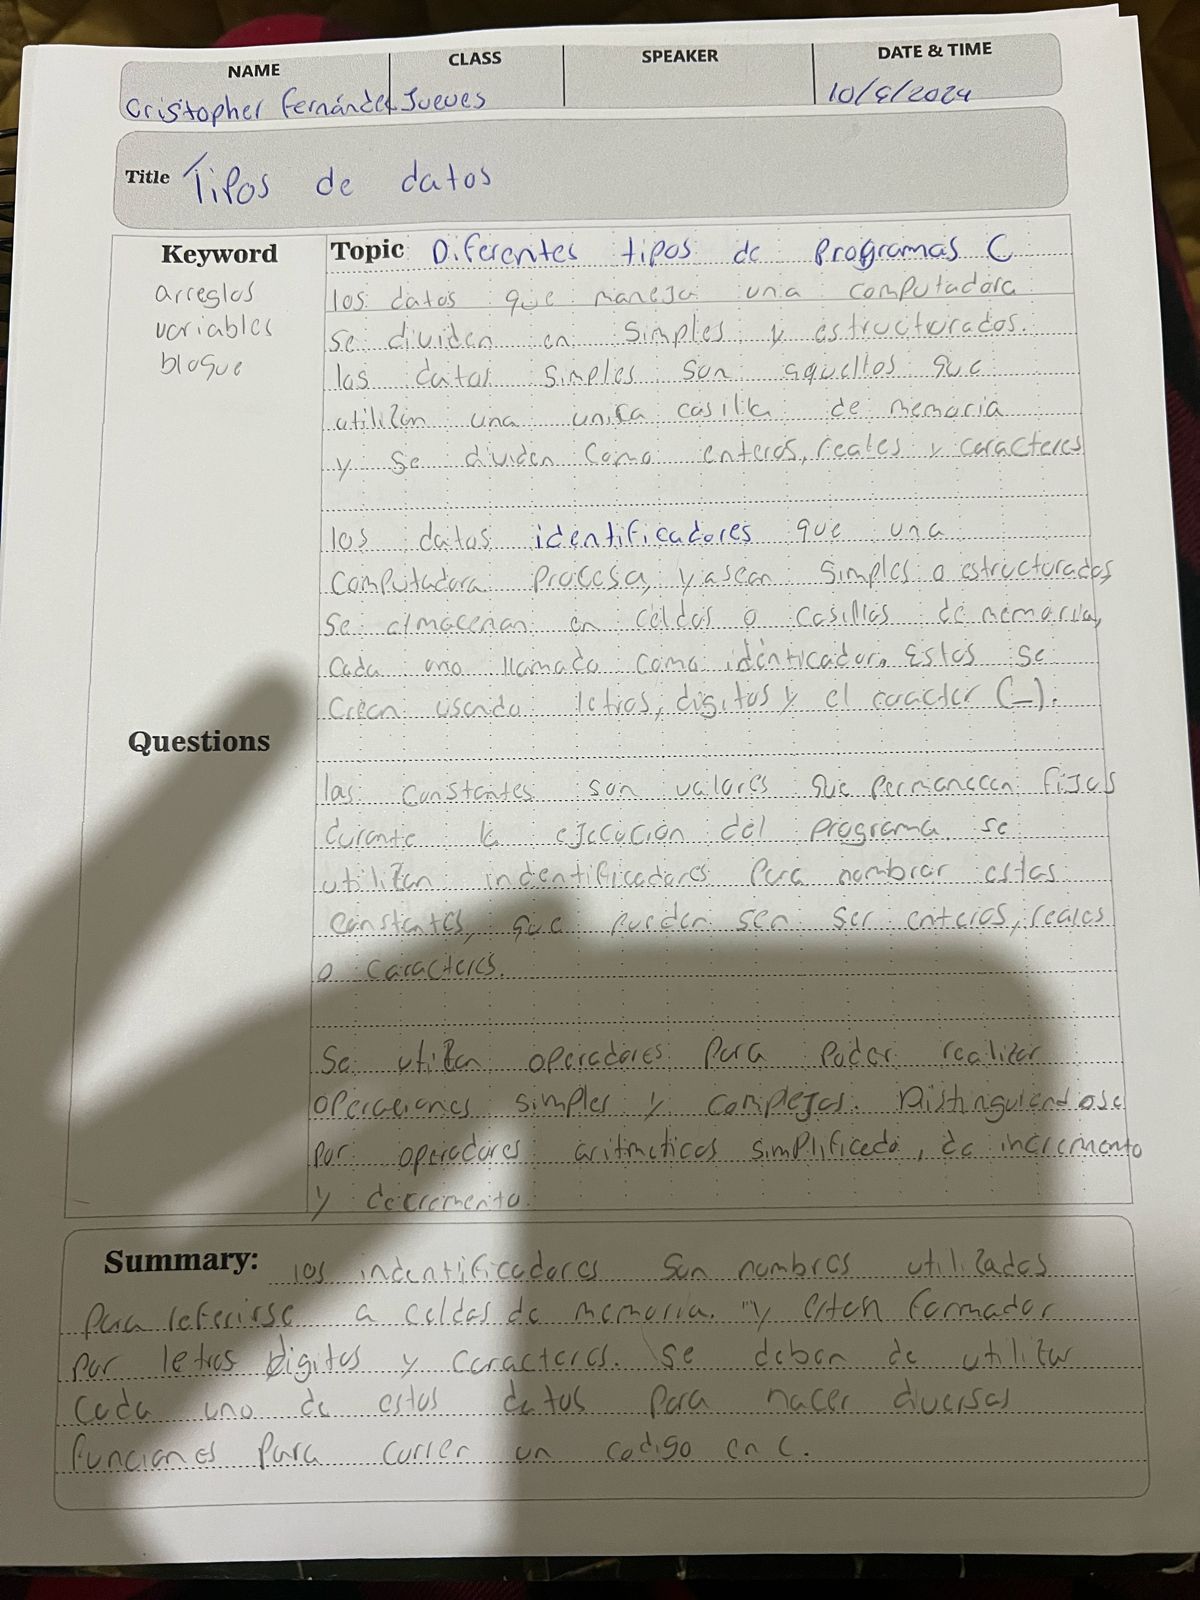 NAME CLASS SPEAKER DATE & TIME
Cristopher Fernández Jueves 10/9/2024
Title Tipos de datos
Keyword
arreglos
variables
bloque
Questions
Topic Diferentes tipos de Programas C
los datos que maneja una computadora
se dividen en simples y estructurados.
los datos simples son aquellos que
utilizan una unica casilla de memoria
y se dividen como enteros, reales y caracteres
los datos identificadores que una
computadora procesa, ya sean simples o estructurados
se almacenan en celdas o casillas de memoria,
cada uno llamado como identicador. Estos se
crean usando letras, digitos y el caracter (_).
las constantes son valores que permanecen fijos
durante la ejecución del programa. se
utilizan indentificadores para nombrar estas
constantes, que pueden sen ser enteros, reales
o caracteres.
Se utilizan operadores para poder realizar
operaciones simples y complejas. Distinguiendose
por operadores aritmeticos simplificado, de incremento
y decremento.
Summary: los indentificadores son nombres utilizados
para referirse a celdas de memoria. y estan formador
por letras digitos y caracteres. Se deben de utilizar
cada uno de estos datos para hacer diversas
funciones para correr un codigo en C.